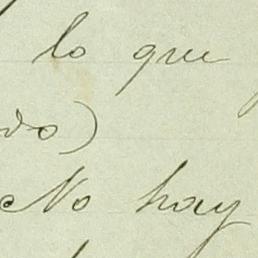 lo que
do)
No hay